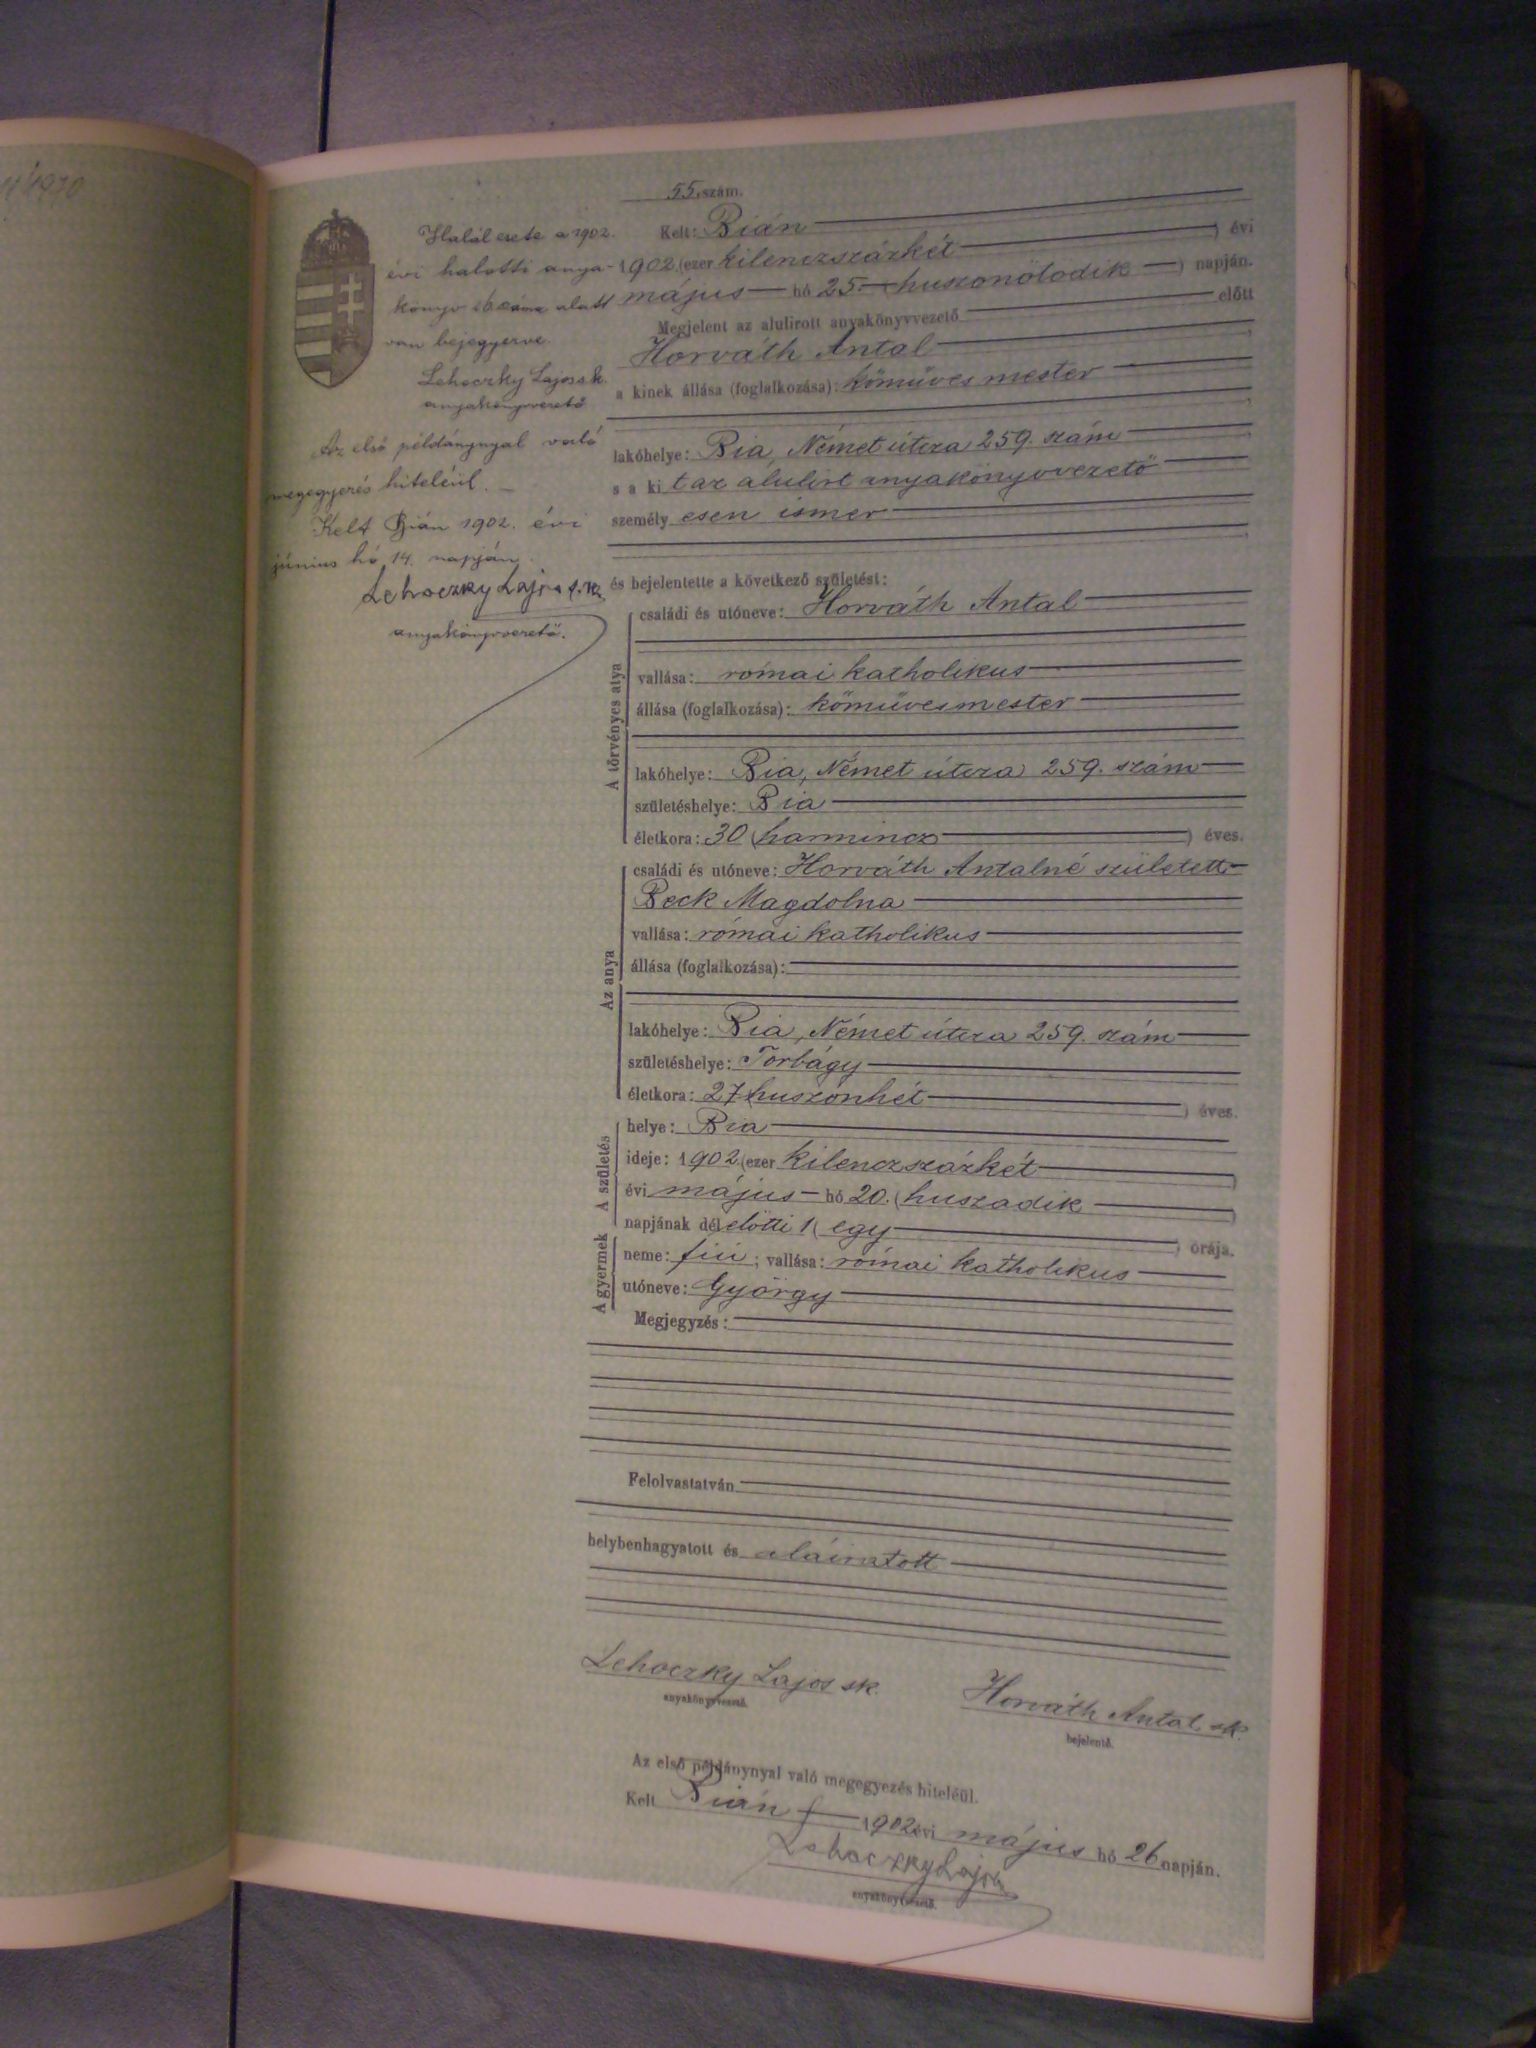 55. szám.
Kelt: Bián
évi
1902. (ezer kilenczszázkét
május hó 25. (huszonötödik) napján.
Megjelent az alulirott anyakönyvvezető előtt
Horváth Antal
a kinek állása (foglalkozása): kőműves mester
lakóhelye: Bia, Német útcza 259. szám
s a kit az alulirt anyakönyvvezető
személyesen ismer
és bejelentette a következő születést:
A törvényes atya
családi és utóneve: Horváth Antal
vallása: római katholikus
állása (foglalkozása): kőművesmester
lakóhelye: Bia, Német útcza 259. szám
születéshelye: Bia
életkora: 30 (harmincz) éves.
Az anya
családi és utóneve: Horváth Antalné született
Beck Magdolna
vallása: római katholikus
állása (foglalkozása):
lakóhelye: Bia, Német útcza 259. szám
születéshelye: Torbágy
életkora: 27 (huszonhét) éves.
A születés
helye: Bia
ideje: 1902. (ezer kilenczszázkét)
évi május hó 20. (huszadik)
napjának délelőtti 1 (egy) órája.
A gyermek
neme: fiú; vallása: római katholikus
utóneve: György
Megjegyzés:
Felolvastatván
helybenhagyatott és aláiratott
Lehoczky Lajos sk.
anyakönyvvezető.
Horváth Antal sk.
bejelentő.
Az első példánynyal való megegyezés hiteléül.
Kelt Bián 1902 évi május hó 26 napján.
Lehoczky Lajos
anyakönyvvezető.
Halál esete a 1902.
évi halotti anya-
könyv száma alatt
van bejegyezve.
Lehoczky Lajos s.k.
anyakönyvvezető
Az első példánynyal való
megegyezés hiteléül.
Kelt Bián 1902. évi
június hó 14. napján.
Lehoczky Lajos s.k.
anyakönyvvezető.